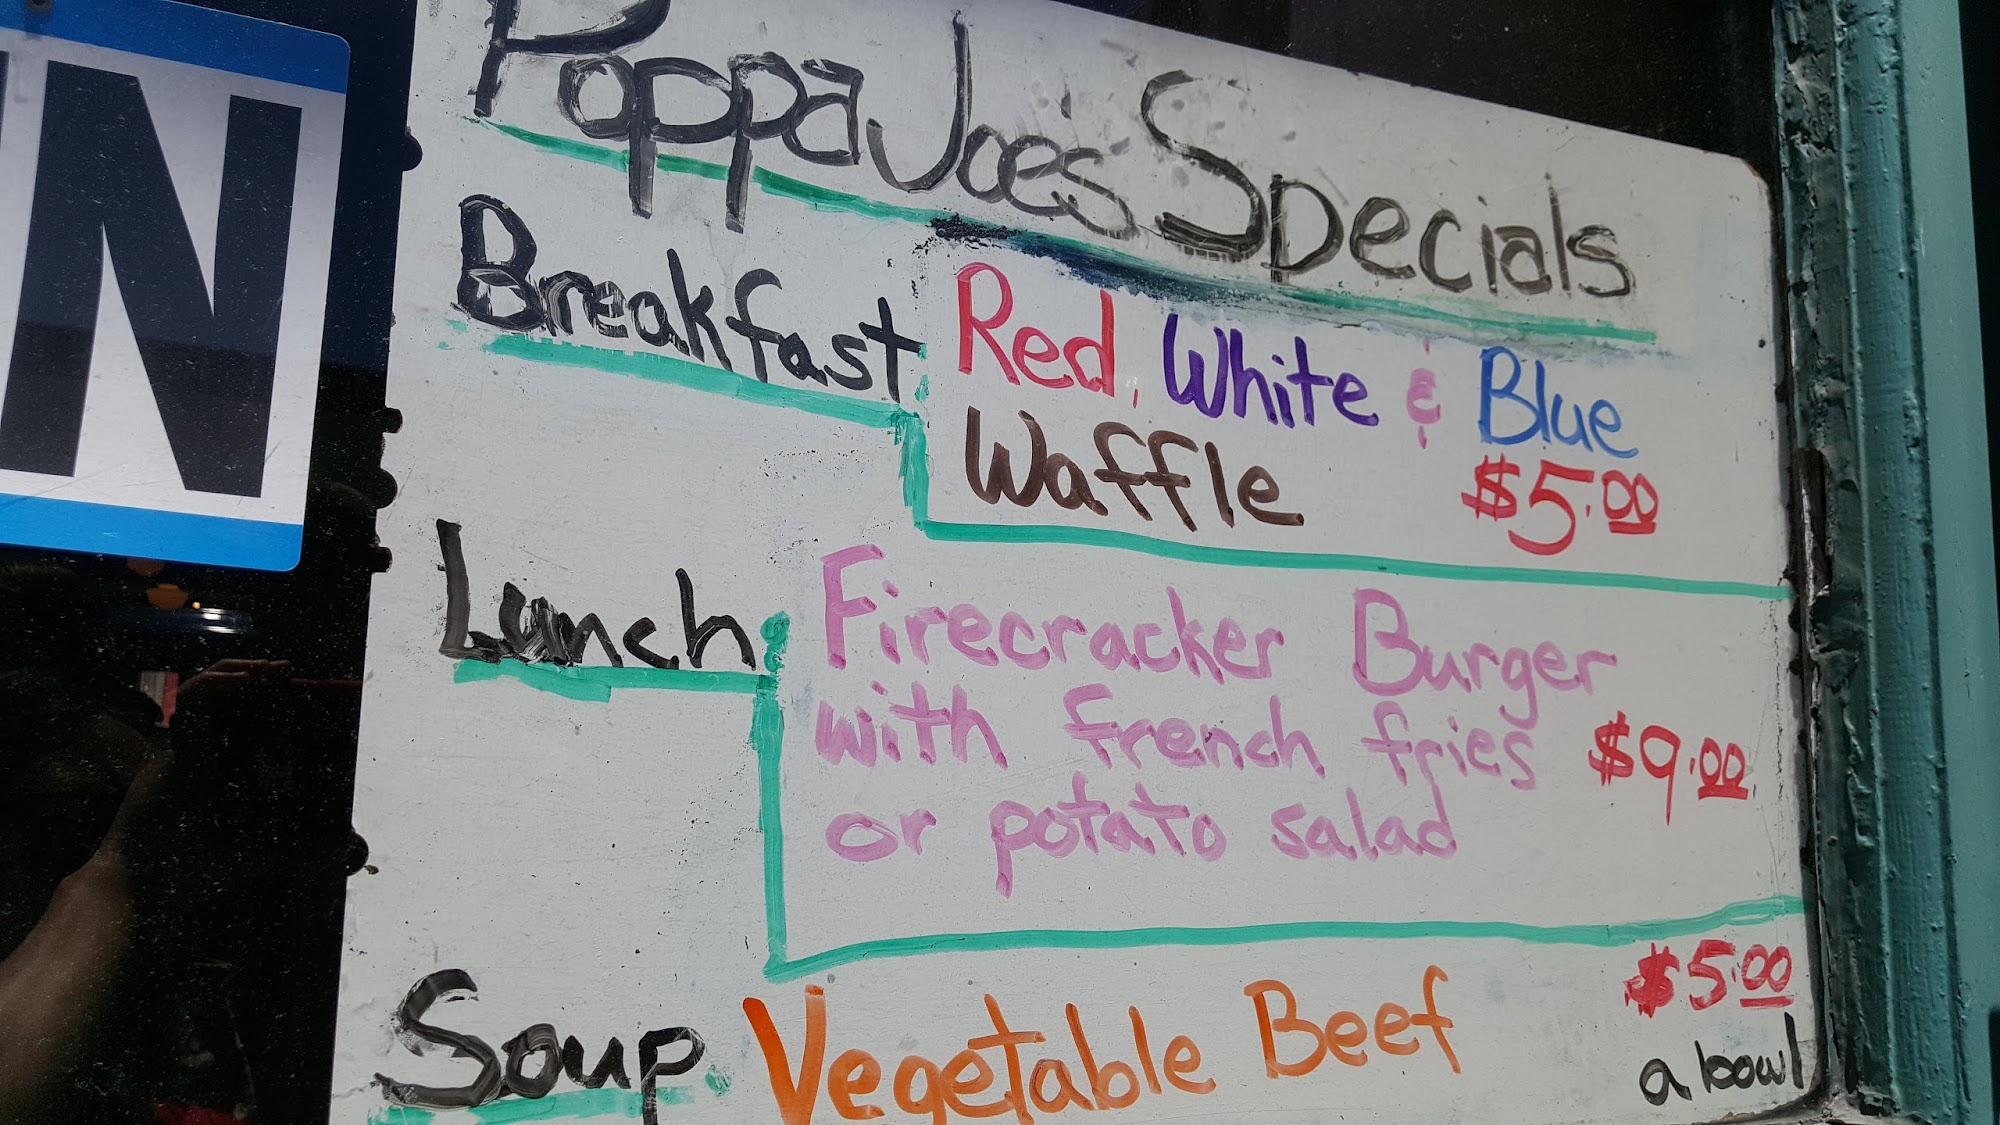 N
Poppa Joe's Specials
Breakfast: Red, White & Blue
Waffle $5.00
Lunch: Firecracker Burger
with french fries $9.00
or potato salad
Soup: Vegetable Beef $5.00
a bowl